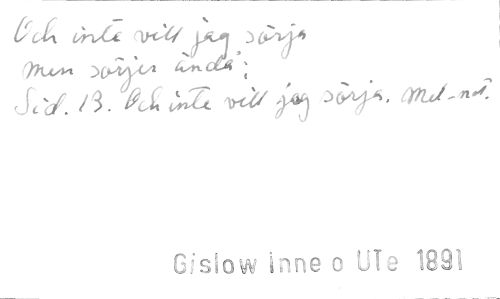 Och inte vill jag sörja
men sörjer ändå;
Sid. 13. Och inte vill jag sörja. Mel-not.
Gislow Inne o UTe 1891